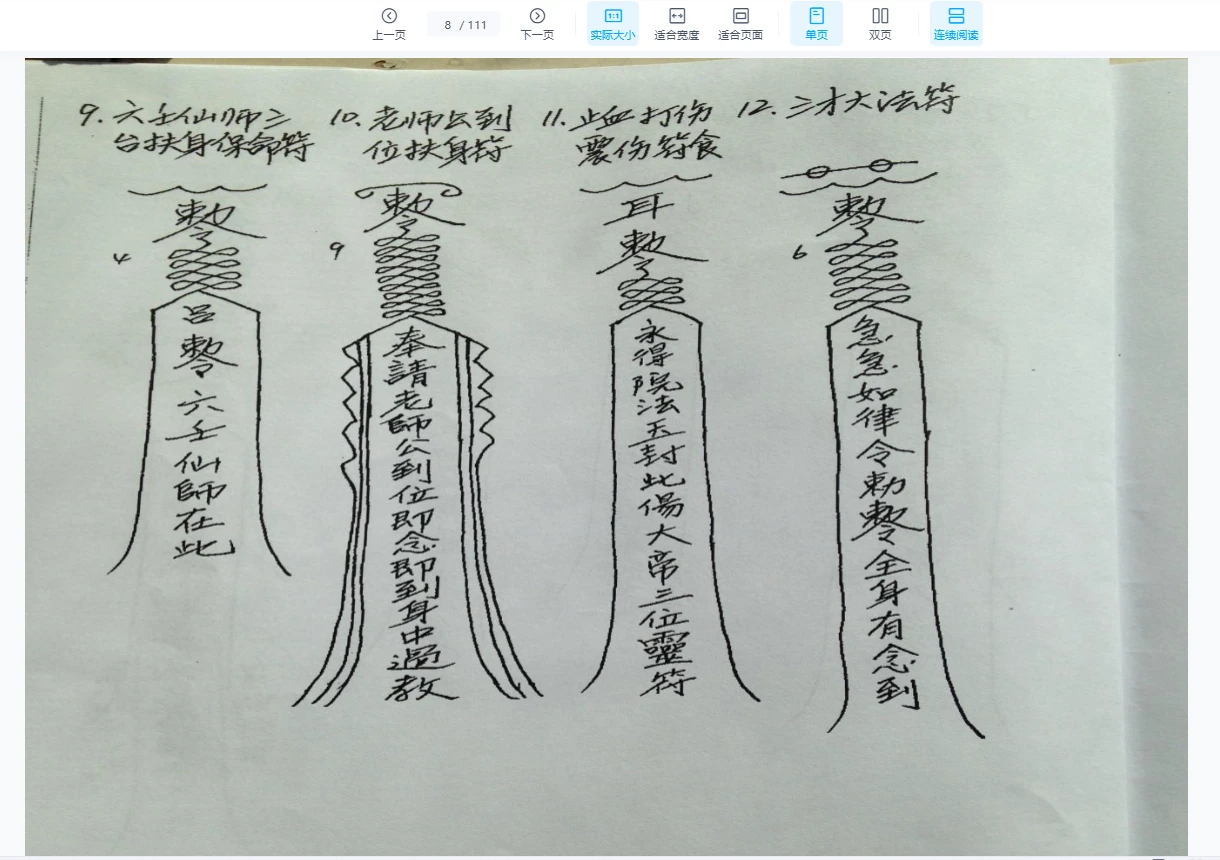 上一页
8 / 111
下一页
1:1
实际大小
适合宽度
适合页面
单页
双页
连续阅读
9. 六壬仙师三
台扶身保命符
勅令
4
呂
勅令
六壬仙師在此
10. 老师公到
位扶身符
勅令
9
奉請老師公到位即念即到身中過教
11. 止血打伤
震伤符食
耳
勅令
永得院法五封此傷大帝三位靈符
12. 三才大法符
勅令
6
急急如律令勅勅令全身有念到